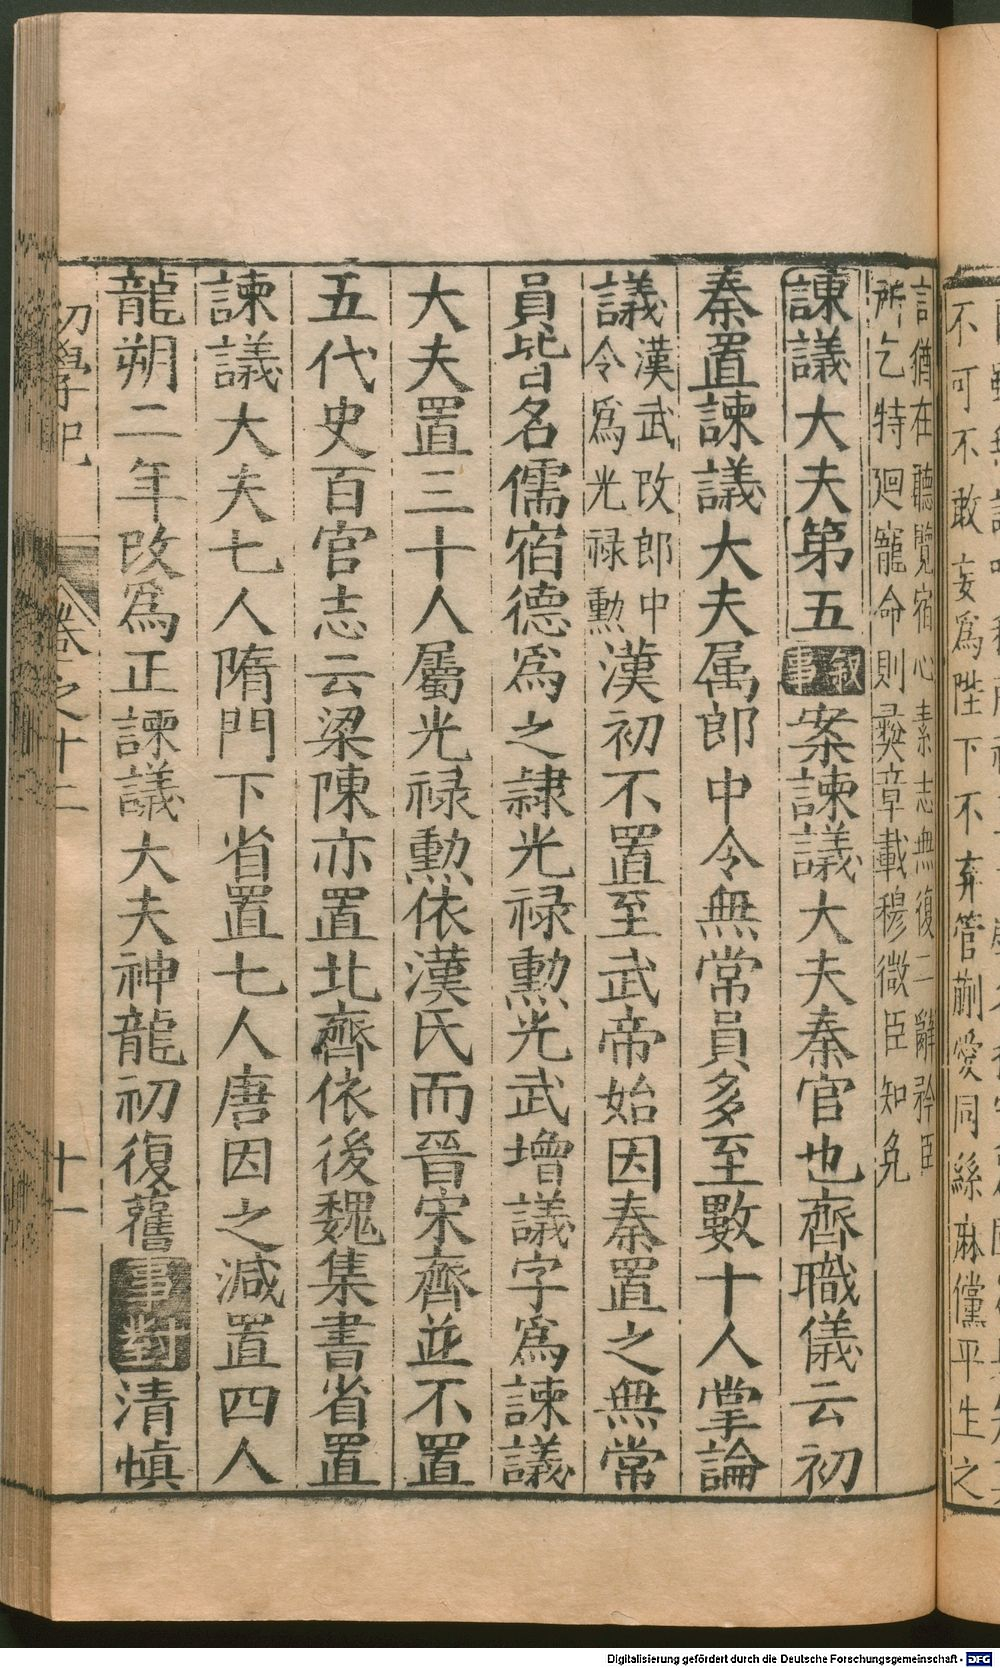 不可不敢妄爲陛下不弃管蒯愛同絲麻儻平生之
言猶在聽覽宿心素志無復二辭矜臣
所乞特廻寵命則彛章載穆微臣知免
諫議大夫第五 敘事 案諫議大夫秦官也齊職儀云初
秦置諫議大夫属郎中令無常員多至數十人掌論
議漢武改郎中
令爲光禄勲
漢初不置至武帝始因秦置之無常
員皆名儒宿德爲之隷光禄勲光武增議字爲諫議
大夫置三十人屬光禄勲依漢氏而晉宋齊並不置
五代史百官志云梁陳亦置北齊依後魏集書省置
諫議大夫七人隋門下省置七人唐因之減置四人
龍朔二年改爲正諫議大夫神龍初復舊 事對 清慎
初學記 卷之十二 十一
Digitalisierung gefördert durch die Deutsche Forschungsgemeinschaft - DFG